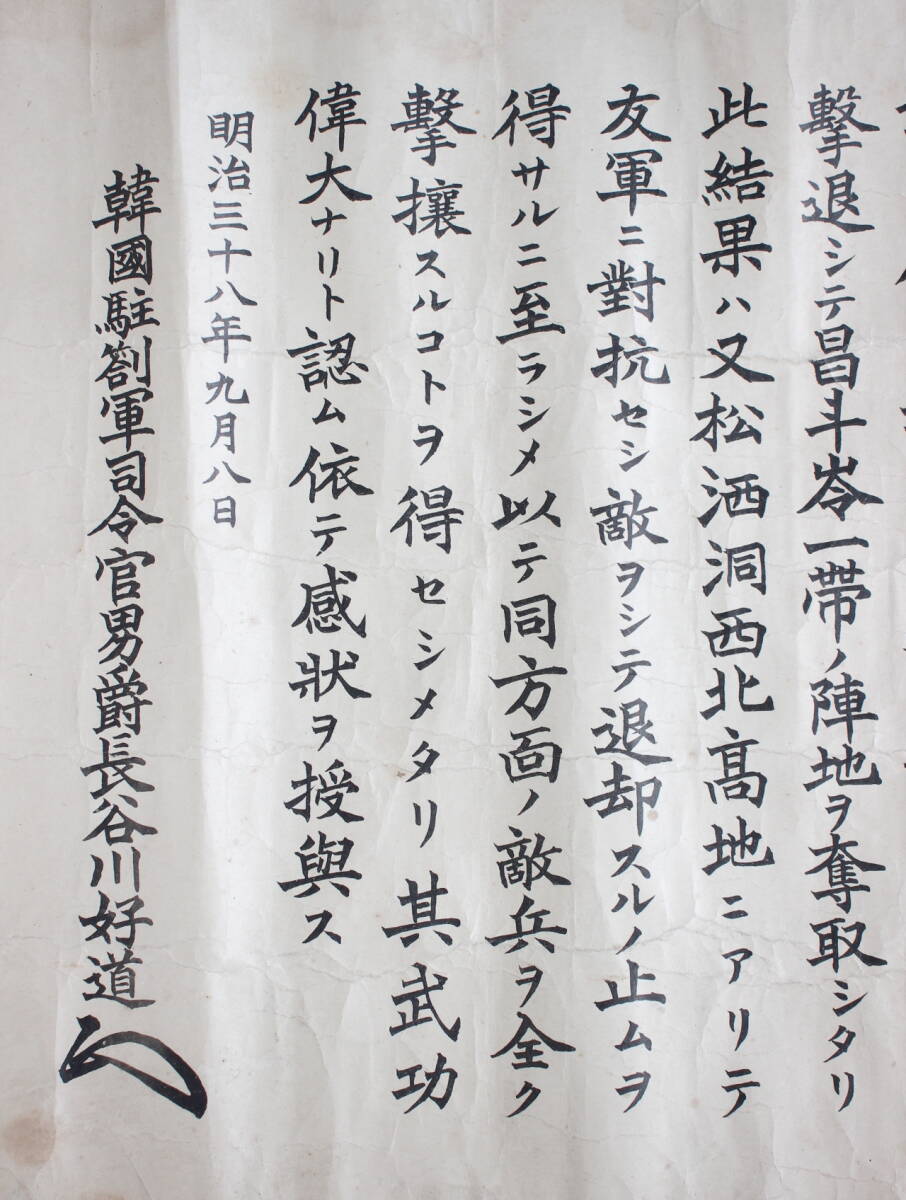 擊退シテ昌斗岺一帶ノ陣地ヲ奪取シタリ
此結果ハ又松洒洞西北高地ニアリテ
友軍ニ對抗セシ敵ヲシテ退却スルノ止ムヲ
得サルニ至ラシメ以テ同方面ノ敵兵ヲ全ク
擊攘スルコトヲ得セシメタリ其武功
偉大ナリト認ム依テ感狀ヲ授與ス
明治三十八年九月八日
韓國駐劄軍司令官男爵長谷川好道